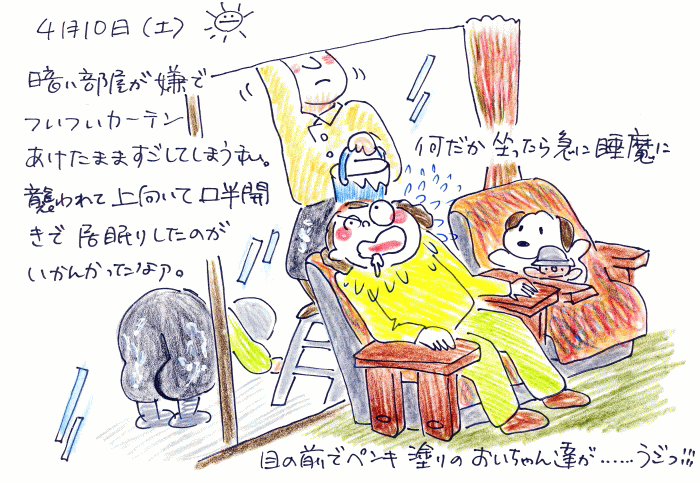 4月10日(土)
暗い部屋が嫌で
ついついカーテン
あけたまますごしてしまうオレ。
何だか坐ったら急に睡魔に
襲われて上向いて口半開
きで居眠りしたのが
いかんかったなァ。
目の前でペンキ塗りのおいちゃん達が……うじっ!!!